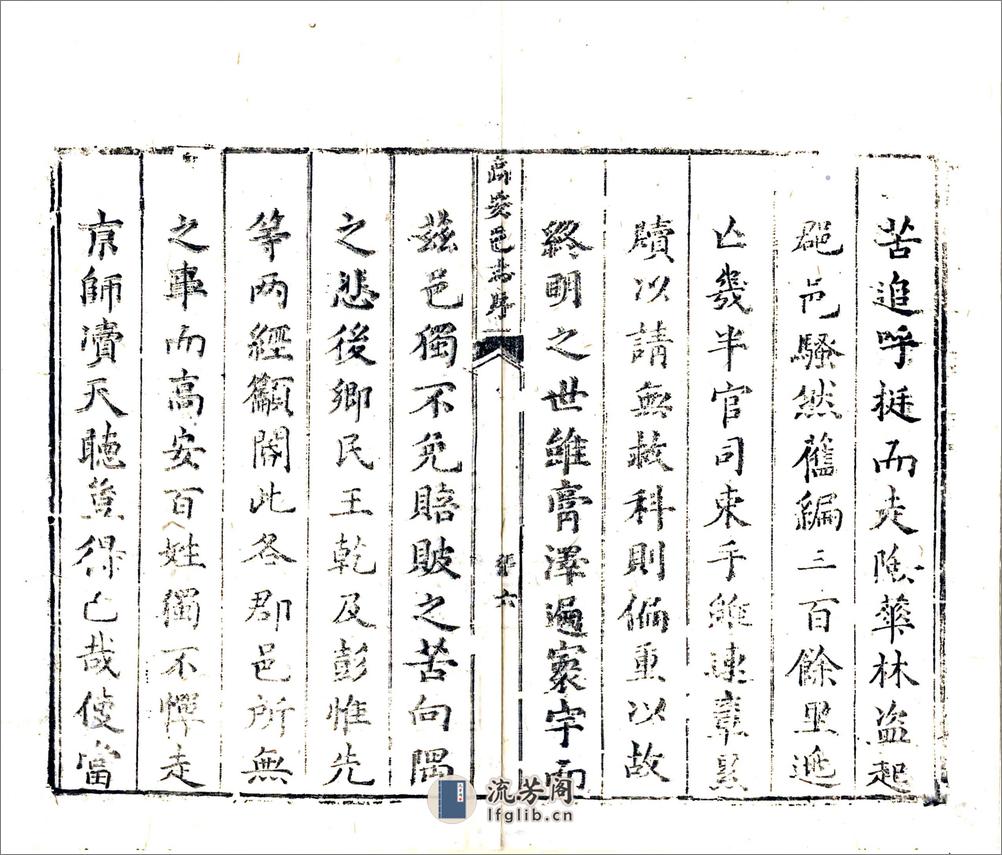 苦追呼挺而走險華林盗起
郡邑騷然舊編三百餘里逃
亡幾半官司束手雖連章累
牘以請無裁科則偏重以故
終明之世雖膏澤遍寰宇而
高安邑志序
序 六
茲邑獨不免賠賍之苦向隅
之悲後鄉民王乾及彭惟先
等两經籲閽此各郡邑所無
之事而高安百姓獨不憚走
京師瀆天聽豈得已哉使當
流芳阁
lfglib.cn